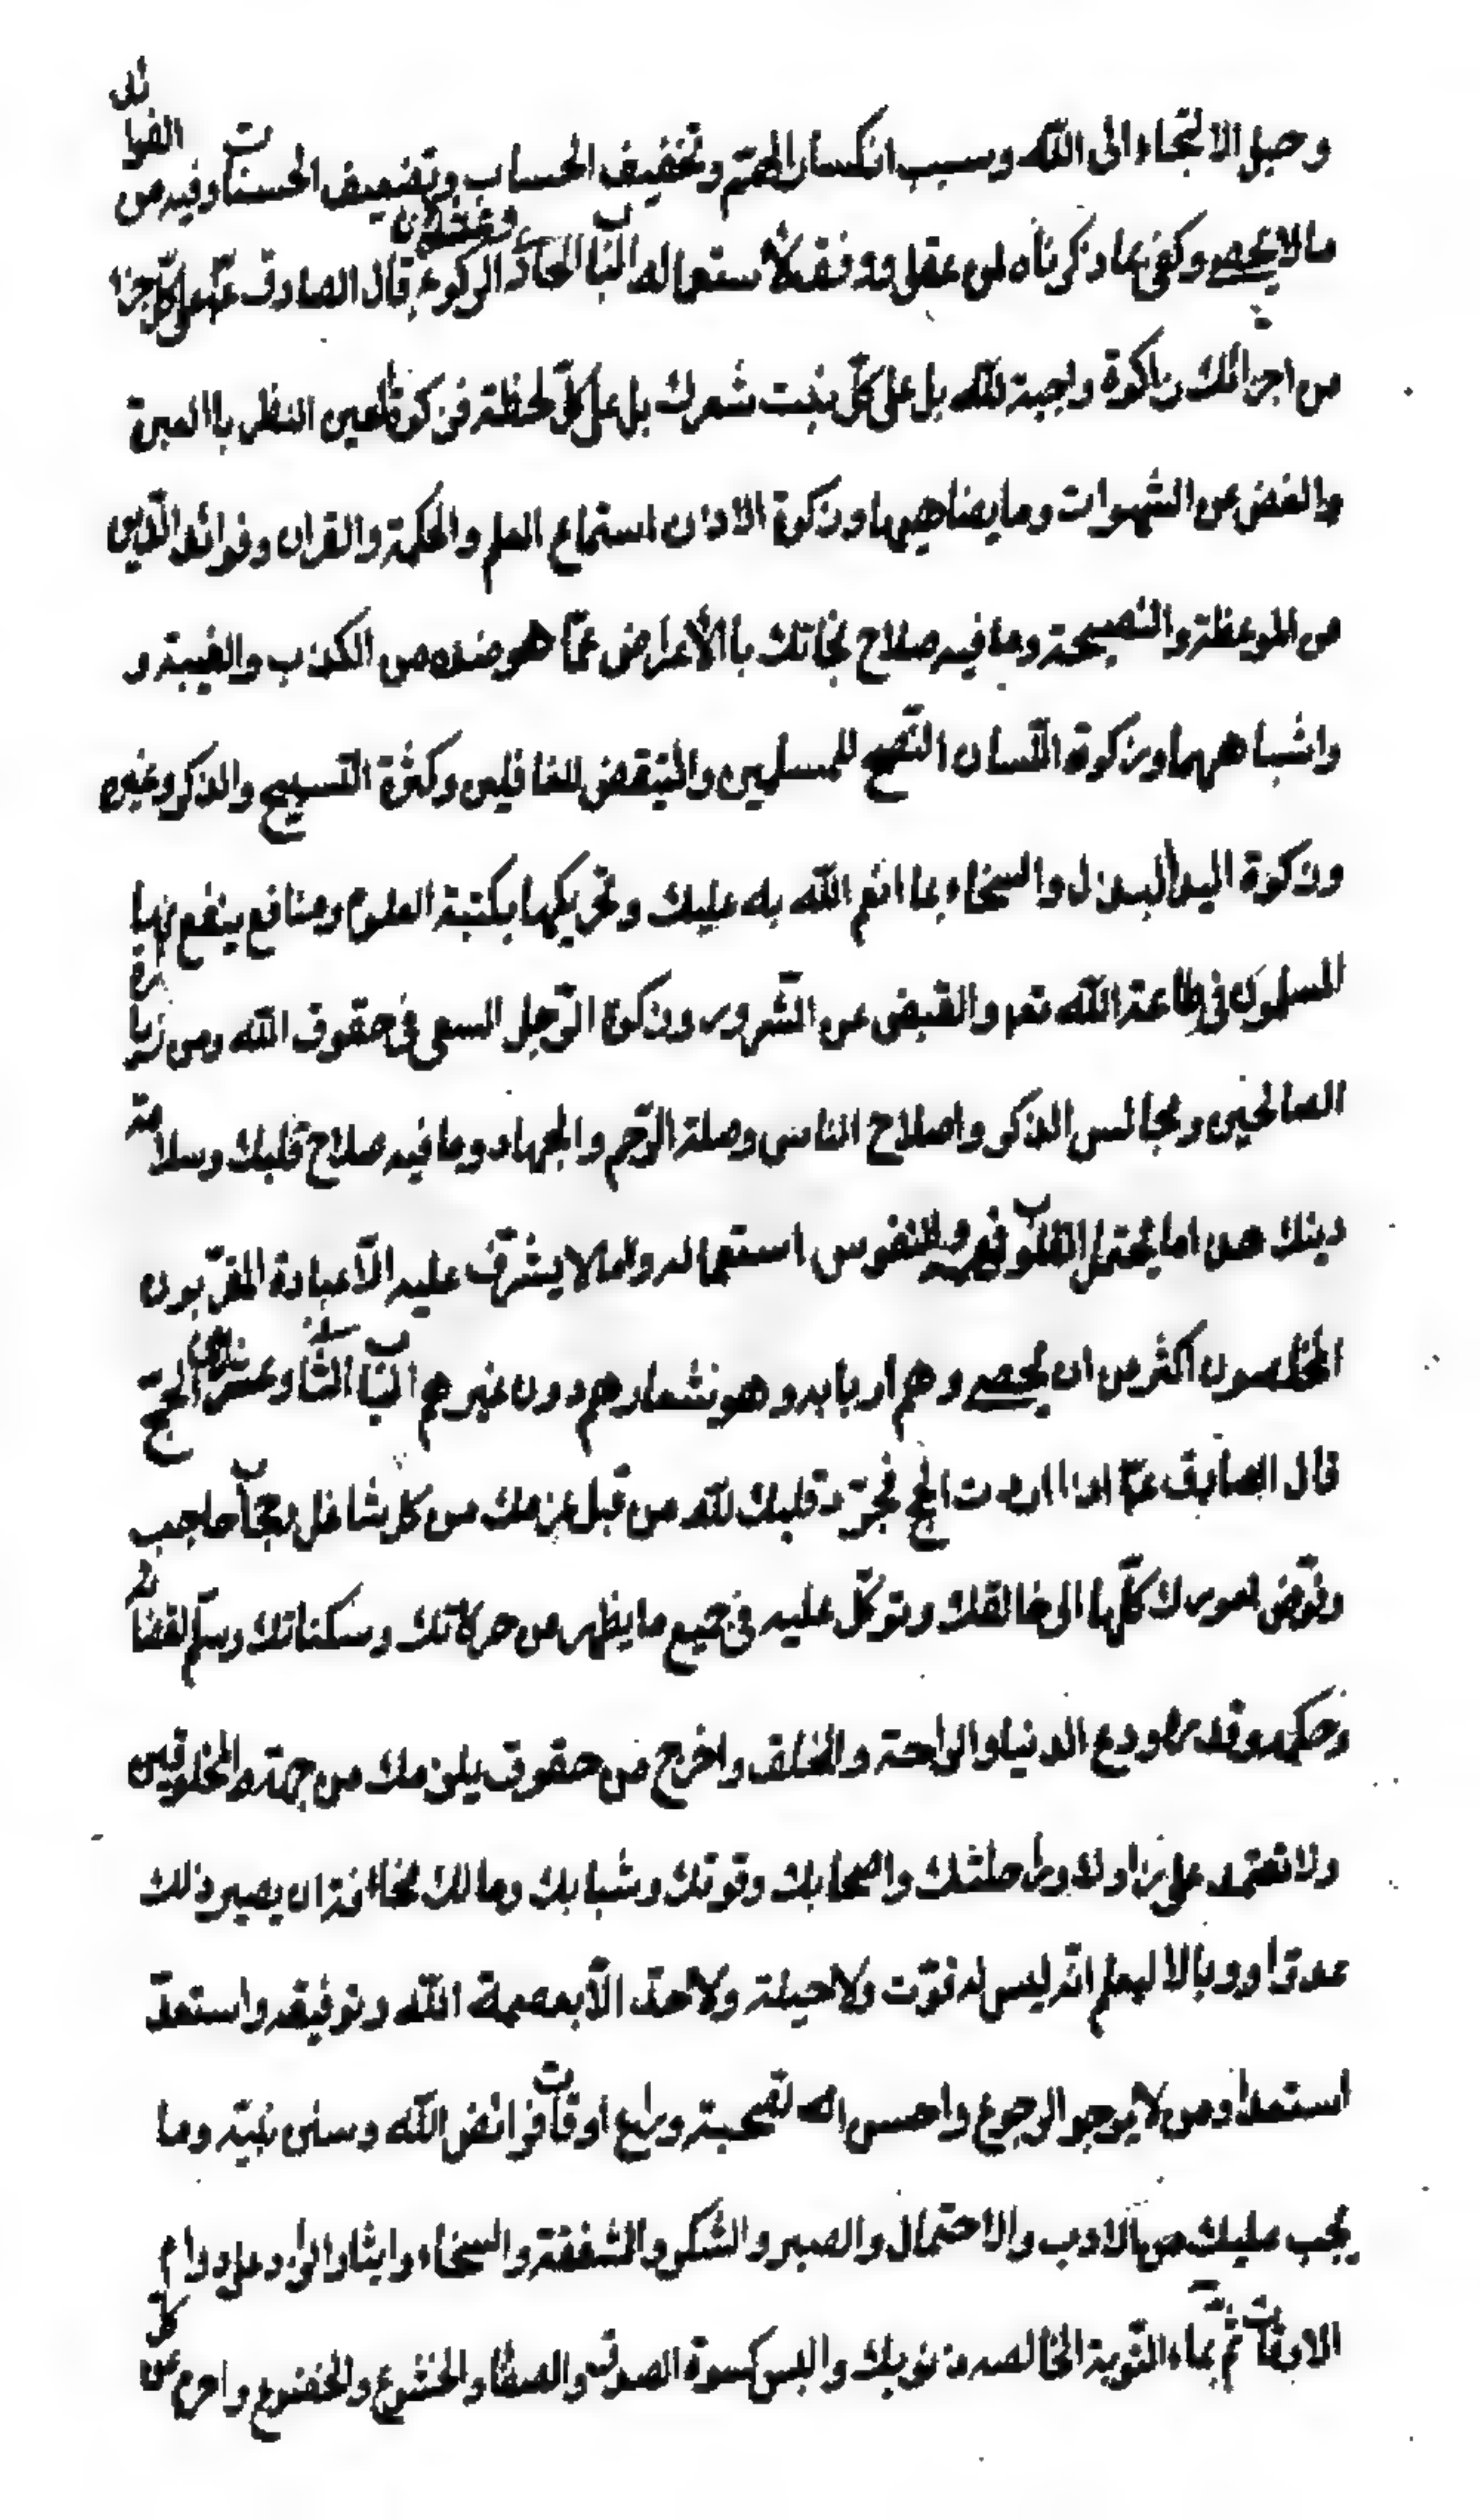 وحبل الالتجاء الى الله وسبب انكسار الهمّة وتخفيف الحساب وتضعيف الحسنات وفيه من الفوائد
مالا يحصى وكفى بما ذكرناه لمن عقل ووفق لاستعماله الباب الحادى والعشرون فى الزكوة قال الصادق ع على كل جزء
من اجزائك زاكوة واجبة لله بل على كلّ منبت شعرك بل على كلّ لحظة فزكوة العين النظر باالعبرة
والغض عن الشهوات وما يضاهيها وزكوة الاذن استماع العلم والحكمة والقران وفوائد الدّين
من الموعظة والنصيحة وما فيه صلاح نجاتك باالأعراض عمّا هو ضده من الكذب والغيبة و
واشباههما وزكوة اللّسان النّصح للمسلمين والتيقض للغافلين وكثرة التسبيح والذكر وغيره
وزكوة اليد البذل والسخاء بما انعم الله به عليك وتحريكها بكتبة العلوم ومنافع ينفع بها
المسلمون فى طاعة الله تعم والقبض عن الشّرور وزكوة الرّجل السعى فى حقوق الله ومن زيارة
الصالحين ومجالس الذكر واصلاح الناس وصلة الرّحم والجهاد وما فيه صلاح قلبك وسلامة
دينك هذا ما يحتمل القلوب فهمه والنفوس استعماله وما لا يشرّف عليه الّا عبادة المقرّبون
المخلصون اكثر من ان يحصى وهم اربابه وهو شعارهم دون غيرهم الباب الثانى وعشرون فى الحجّ
قال الصادق ع اذا اردت الحج فجرّد قلبك لله من قبل عزمك من كل شاغل وحجاب حاجب
وفوّض امورك كلّها الى خالقك وتوكّل عليه فى جميع ما يظهر من حركاتك وسكناتك وسلّم لقضائه
وحكمه وقدره وودع الدنيا والراحة والخلق واخرج من حقوق يلزمك من جهة المخلوقين
ولا تعتمد على زادك وراحلتك واصحابك وقوتك وشبابك ومالك مخافة ان يصير ذلك
عدوّا ووبالا ليعلم انّه ليس له قوّت ولا حيلة ولا احد الّا بعصمة الله وتوفيقه واستعدّ
استعداد من لا يرجو الرجوع واحسن الصحبة وراع اوقات فرائض الله وسنن نبيّه وما
يجب عليك من الادب والاحتمال والصبر والشكر والشفقة والسخاء وايثار الزاد على دوام
الاوقات ثم بماء التّوبة الخالصه ذنوبك والبس كسوة الصدق والصفا والخشوع والخضوع واحرم عن كلّ